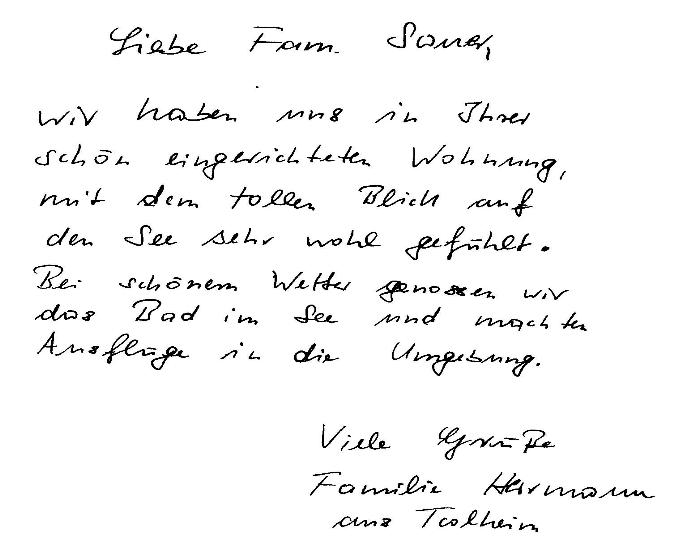 Liebe Fam. Sauer,
wir haben uns in Ihrer
schön eingerichteten Wohnung,
mit dem tollen Blick auf
den See sehr wohl gefühlt.
Bei schönem Wetter genossen wir
das Bad im See und machten
Ausflüge in die Umgebung.
Viele Grüße
Familie Herrmann
aus